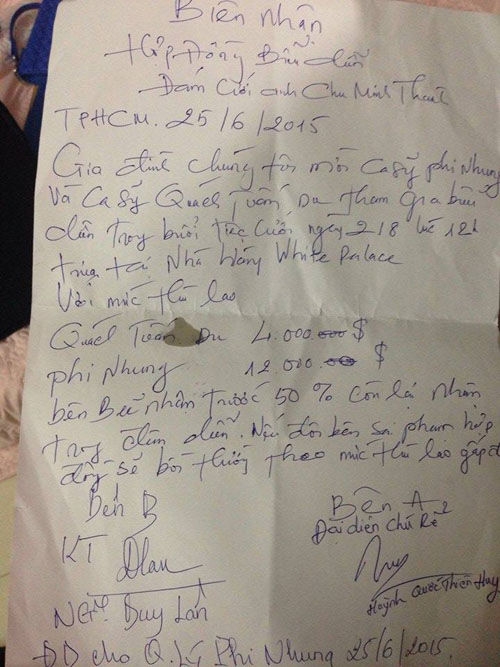 Biên nhận
Hợp Đồng Biểu diễn
Đám Cưới anh Chu Minh
TPHCM. 25/6/2015
Gia đình chúng tôi mời Ca sỹ phi Nhung
Và Ca Sỹ Quách Tuấn Du tham gia biểu
diễn trong buổi tiệc cưới ngày 2/8 lúc 12h
trưa tại Nhà hàng White Palace
Với mức thù lao
Quách Tuấn Du 4.000 $
phi Nhung 12.000 $
bên B sẽ nhận trước 50% còn lại nhận
trong đêm diễn. Nếu đôi bên sai phạm hợp
đồng sẽ bồi thường theo mức thù lao gấp đôi
Bên B
Bên A
Đại diện Chú Rể
KT
Huỳnh Quốc Thiên Huy
NGM. Duy Lân
ĐD cho Q. Lý Phi Nhung 25/6/2015.